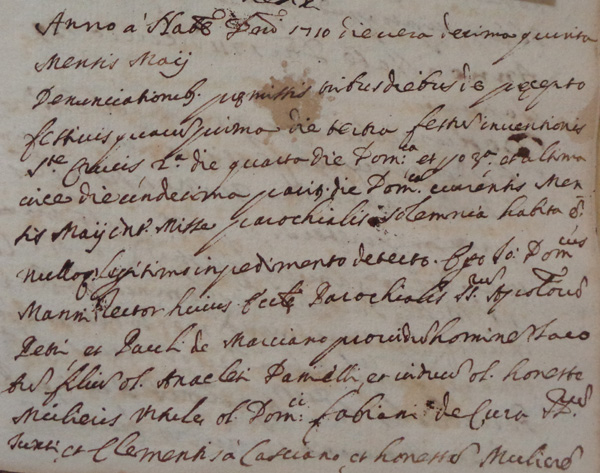 Anno à Nate Dni 1710 die vera decima quinta
Mensis Maij
Denunciationib. pmissis tribus diebus de pcepto
festivis quarum prima die tertia festus inventionis
Ste Crucis 2.a die quarta die Dom.ca et 3.a et ultima
die undecima die Dom.ca currentis Men
sis Maij int. Missę parochialis solemnia habita
nulloq. legitimo inpedimento detecto. Ego Jo: Dom.cus
Rector huius Eccle Parochialis SS. Aplorum
Petri et Pauli de Marciano providum hominem Jaco
bum filium ol. Anacleti et ol. honeste
Mulieris ol. Dom.ci Fabiani de Cura SS.rum
Justi et Clementis à Casciano et honestam Mulierem